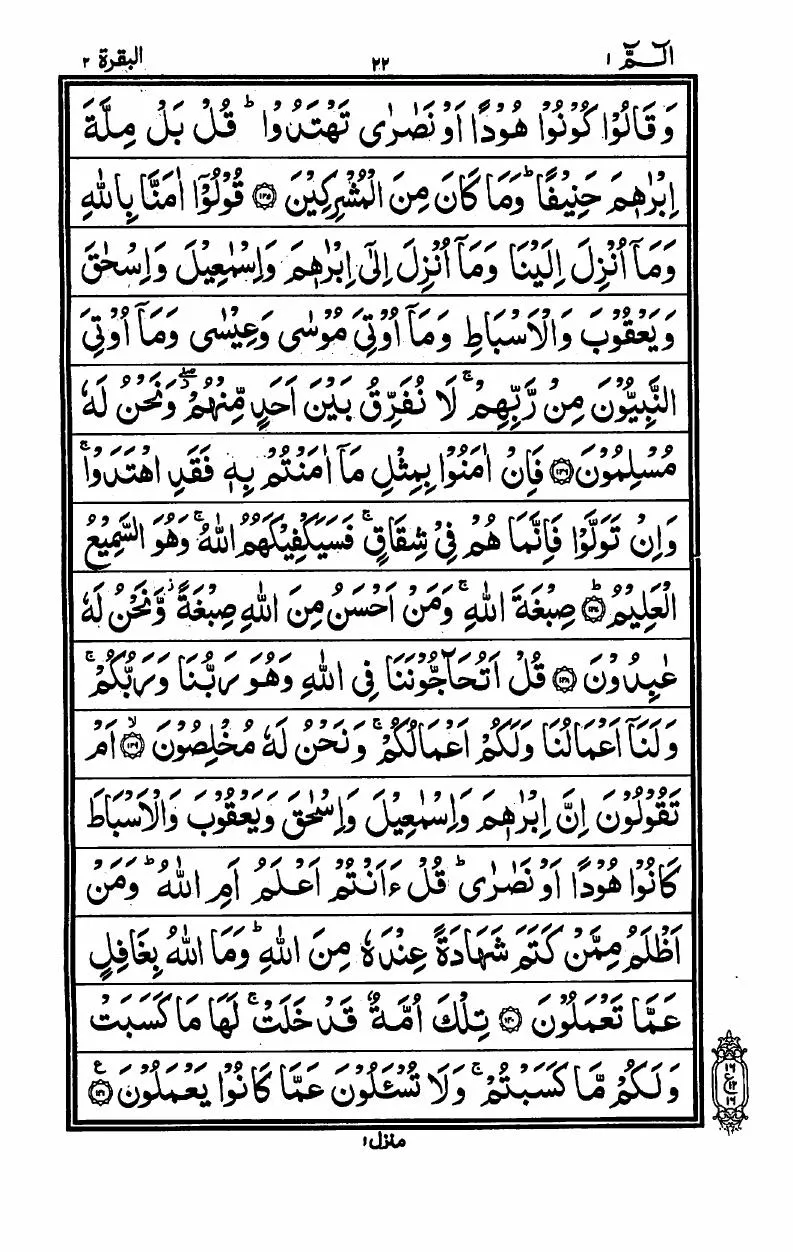 الٓمّٓ ۱ ۲۲ البقرة ۲
وَقَالُوْا كُوْنُوْا هُوْدًا اَوْ نَصٰرٰى تَهْتَدُوْا ؕ قُلْ بَلْ مِلَّةَ
اِبْرٰهٖمَ حَنِيْفًا ؕ وَمَا كَانَ مِنَ الْمُشْرِكِيْنَ ۝۱۳۵ قُوْلُوْٓا اٰمَنَّا بِاللّٰهِ
وَمَآ اُنْزِلَ اِلَيْنَا وَمَآ اُنْزِلَ اِلٰٓى اِبْرٰهٖمَ وَاِسْمٰعِيْلَ وَاِسْحٰقَ
وَيَعْقُوْبَ وَالْاَسْبَاطِ وَمَآ اُوْتِيَ مُوْسٰى وَعِيْسٰى وَمَآ اُوْتِيَ
النَّبِيُّوْنَ مِنْ رَّبِّهِمْ ۚ لَا نُفَرِّقُ بَيْنَ اَحَدٍ مِّنْهُمْ ۖ وَنَحْنُ لَهٗ
مُسْلِمُوْنَ ۝۱۳۶ فَاِنْ اٰمَنُوْا بِمِثْلِ مَآ اٰمَنْتُمْ بِهٖ فَقَدِ اهْتَدَوْا ۚ
وَاِنْ تَوَلَّوْا فَاِنَّمَا هُمْ فِيْ شِقَاقٍ ۚ فَسَيَكْفِيْكَهُمُ اللّٰهُ ۚ وَهُوَ السَّمِيْعُ
الْعَلِيْمُ ۝۱۳۷ؕ صِبْغَةَ اللّٰهِ ۚ وَمَنْ اَحْسَنُ مِنَ اللّٰهِ صِبْغَةً ؗ وَّنَحْنُ لَهٗ
عٰبِدُوْنَ ۝۱۳۸ قُلْ اَتُحَآجُّوْنَنَا فِي اللّٰهِ وَهُوَ رَبُّنَا وَرَبُّكُمْ ۚ
وَلَنَآ اَعْمَالُنَا وَلَكُمْ اَعْمَالُكُمْ ۚ وَنَحْنُ لَهٗ مُخْلِصُوْنَ ۝۱۳۹ۙ اَمْ
تَقُوْلُوْنَ اِنَّ اِبْرٰهٖمَ وَاِسْمٰعِيْلَ وَاِسْحٰقَ وَيَعْقُوْبَ وَالْاَسْبَاطَ
كَانُوْا هُوْدًا اَوْ نَصٰرٰى ؕ قُلْ ءَاَنْتُمْ اَعْلَمُ اَمِ اللّٰهُ ؕ وَمَنْ
اَظْلَمُ مِمَّنْ كَتَمَ شَهَادَةً عِنْدَهٗ مِنَ اللّٰهِ ؕ وَمَا اللّٰهُ بِغَافِلٍ
عَمَّا تَعْمَلُوْنَ ۝۱۴۰ تِلْكَ اُمَّةٌ قَدْ خَلَتْ ۚ لَهَا مَا كَسَبَتْ
وَلَكُمْ مَّا كَسَبْتُمْ ۚ وَلَا تُسْـَٔلُوْنَ عَمَّا كَانُوْا يَعْمَلُوْنَ ۝۱۴۱ع
۱۶
ع ۱۲
۱۶
منزل ۱